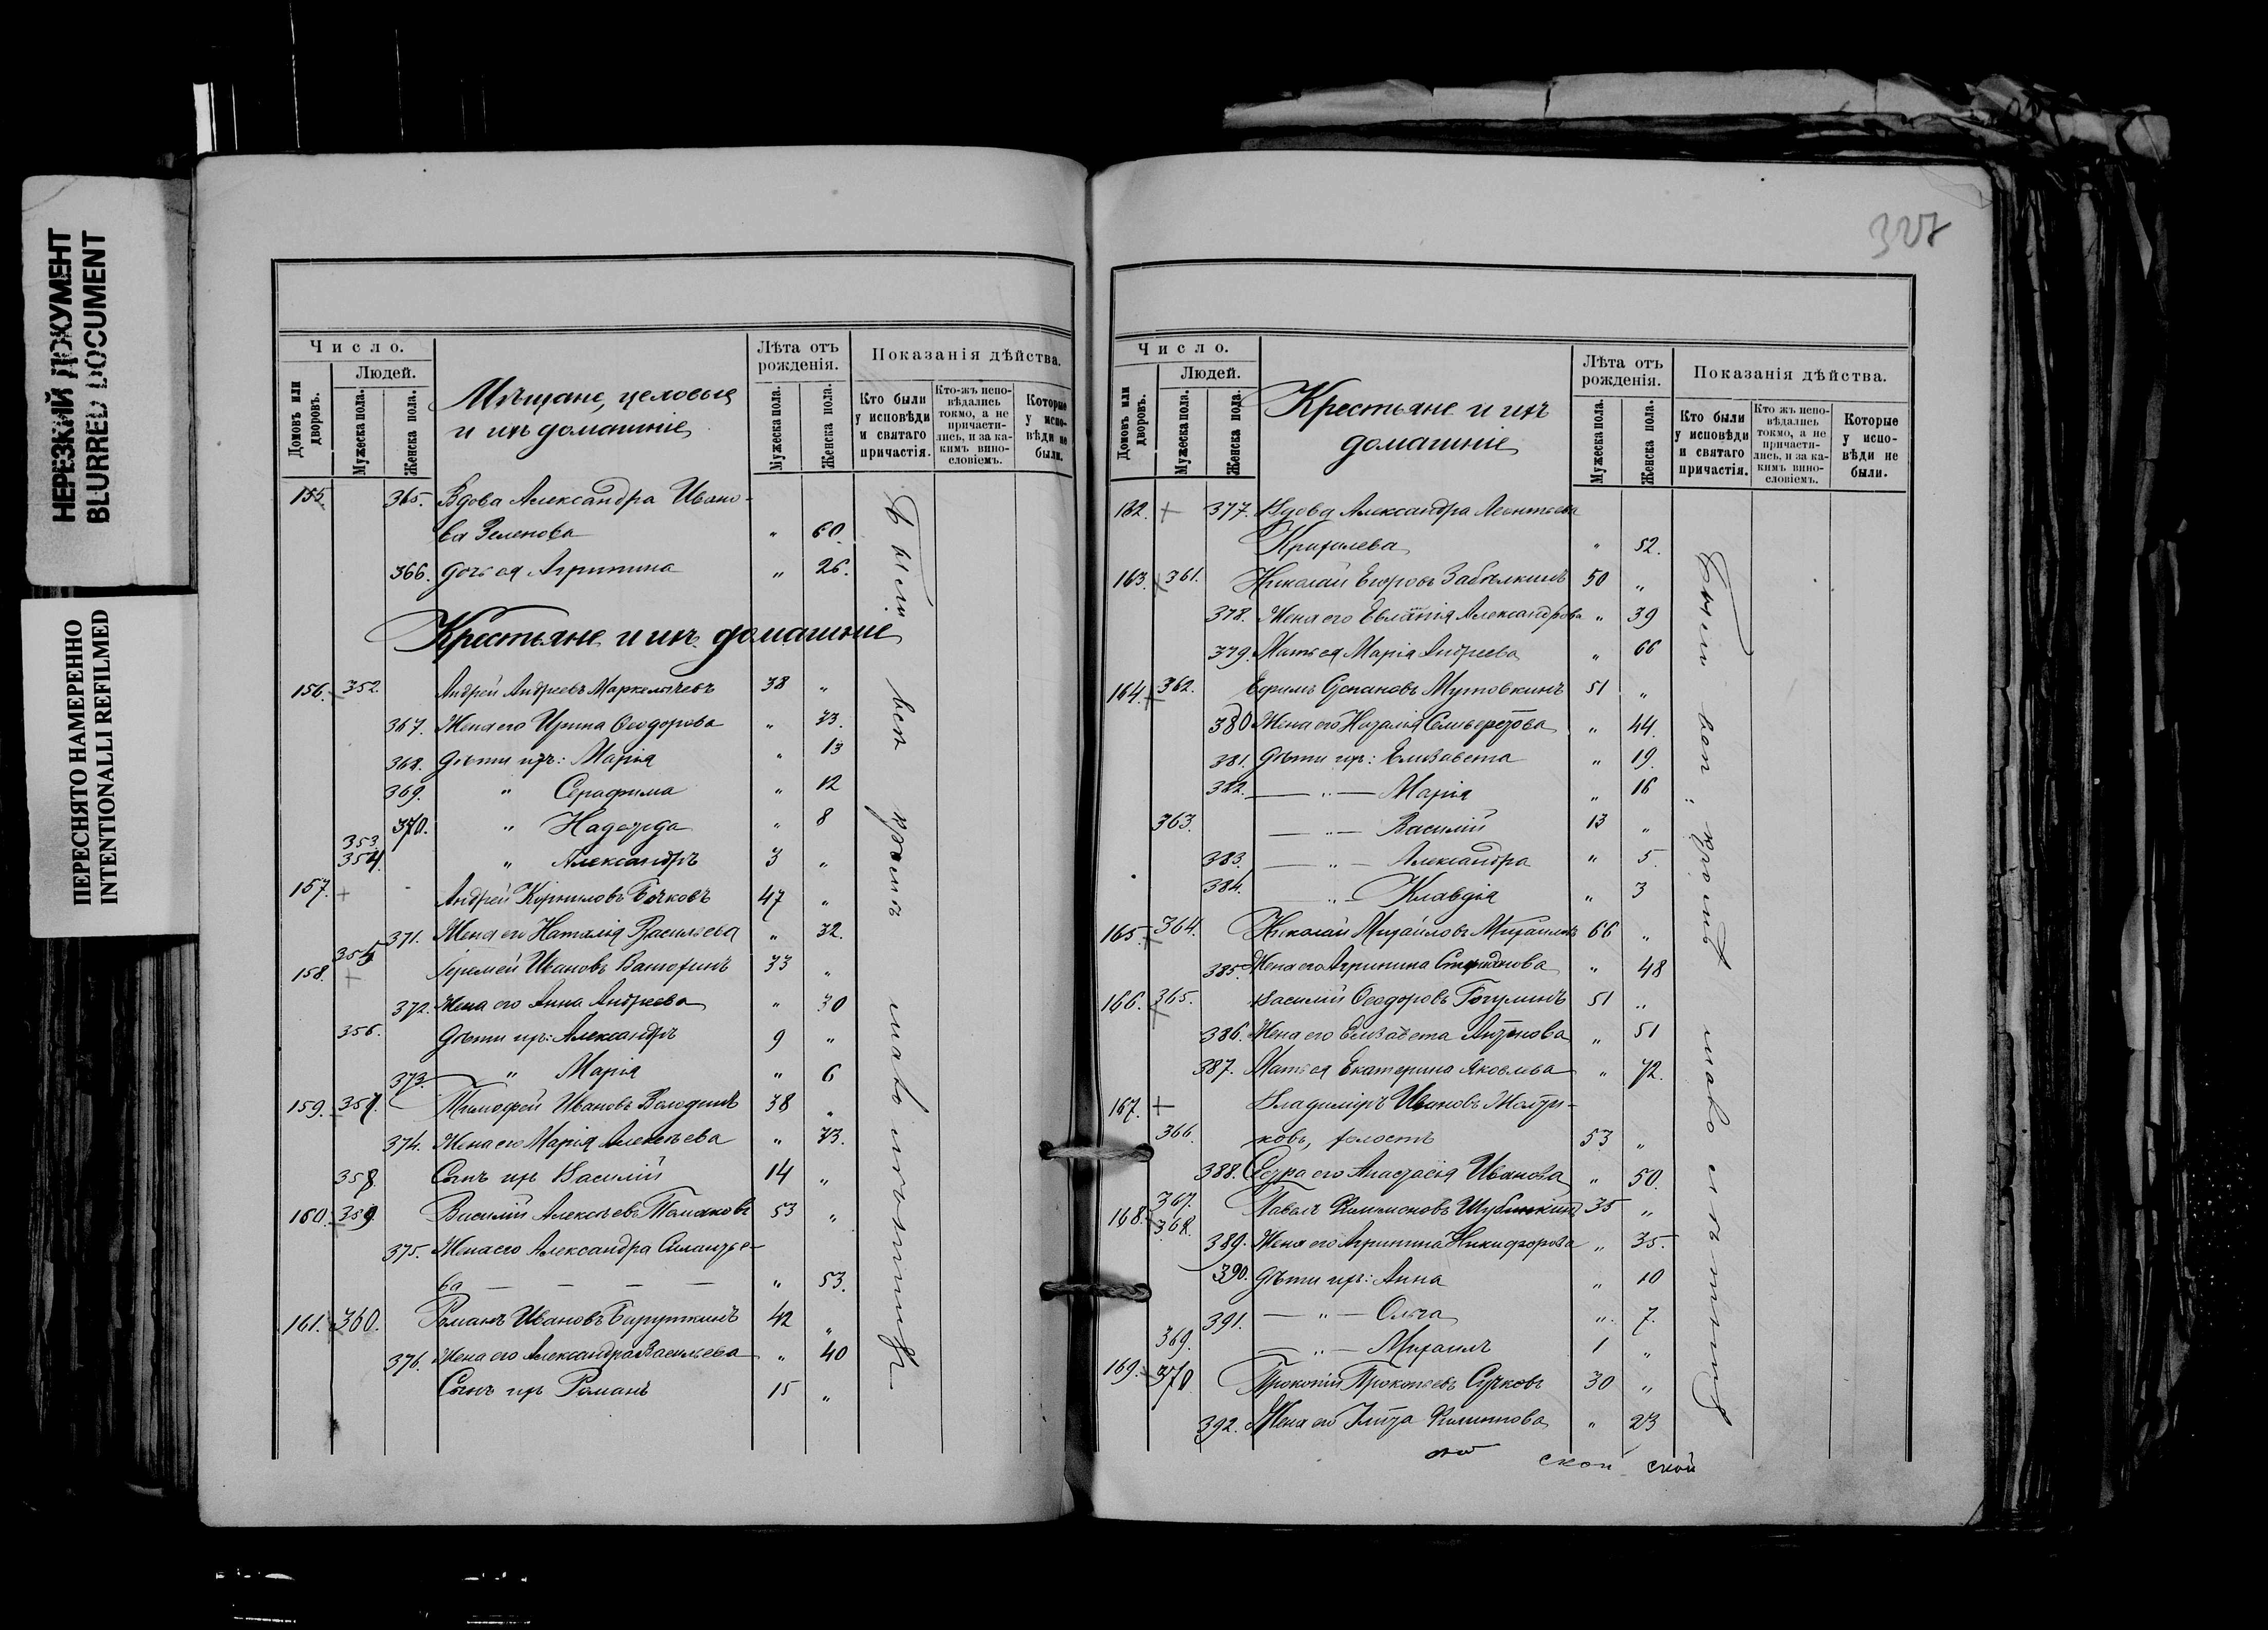 НЕРЕЗКИЙ ДОКУМЕНТ
BLURRED DOCUMENT
ПЕРЕСНЯТО НАМЕРЕННО
INTENTIONALLI REFILMED
Число.
Людей.
Домовъ или дворовъ.
Мужеска пола.
Женска пола.
Мѣщане, цеховые
и ихъ домашніе
Лѣта отъ рожденія.
Мужеска пола.
Женска пола.
Показанія дѣйства.
Кто были у исповѣди и святаго причастія.
Кто-жъ исповѣдались токмо, а не причастились, и за какимъ винословіемъ.
Которые у исповѣди не были.
155. 365. Вдова Александра Ивано-
ва Зеленова " 60.
366. дочь ея Агрипина " 26.
Крестьяне и ихъ домашніе
156. 352. Андрей Андреевъ 38 "
367. Жена его Ирина Ѳеодорова " 33.
368. Дѣти ихъ: Марія " 13
369. " Серафима " 12
370. " Надежда " 8
353.
354. " Александръ 3 "
157. + Андрей Корниловъ Бочковъ 47 "
371. Жена его Наталія Васильева " 32.
158. 355. Еремей Ивановъ Ванюхинъ 33 "
372. Жена его Анна Андреева " 30
356. Дѣти ихъ: Александръ 9 "
373. " Марія " 6
159. 357. Тимофей Ивановъ Володинъ 38 "
374. Жена его Марія Алексѣева " 33.
358. Сынъ ихъ Василій 14 "
160. 359. Василій Алексѣевъ 53 "
375. Жена его Александра Силантье-
ва " 53.
161. 360. Романъ Ивановъ 42 "
376. Жена его Александра Васильева " 40
Сынъ ихъ Романъ 15 "
Были всѣ кромѣ
327
Число.
Людей.
Домовъ или дворовъ.
Мужеска пола.
Женска пола.
Крестьяне и ихъ
домашніе
Лѣта отъ рожденія.
Мужеска пола.
Женска пола.
Показанія дѣйства.
Кто были у исповѣди и святаго причастія.
Кто жъ исповѣдались токмо, а не причастились, и за какимъ винословіемъ.
Которые у исповѣди не были.
162. + 377. Вдова Александра Леонтьева
" 52.
163. 361. Николай Егоровъ Забѣлкинъ 50 "
378. Жена его Евланія Александрова " 39
379. Мать ея Марія Андреева " 66
164. 362. Ефимъ Степановъ Мутовкинъ 51 "
380 Жена его Наталія Селиверстова " 44.
381. Дѣти ихъ: Елизавета " 19.
382. — " — Марія " 16
363. — " — Василій 13 "
383. — " — Александра " 5.
384. — " — Клавдія " 3
165. 364. Николай Михайловъ Михайловъ 66 "
385. Жена его Агрипина " 48
166. 365. Василій Ѳеодоровъ 51 "
386. Жена его Елизавета Антонова " 51
387. Мать ея Екатерина Яковлева " 72.
167. + Владиміръ Ивановъ
366. ковъ, холостъ 53 "
388. Сестра его Анастасія Иванова " 50.
168. 367. Павелъ Филимоновъ 35 "
368.
389. Жена его Агрипина Никифорова " 35.
390. Дѣти ихъ: Анна " 10
391. — " — Ольга " 7.
369. — " — Михаилъ 1 "
169. 370 Прокопій Прокопьевъ Сучковъ 30 "
392. Жена его Филиппова " 23
Были всѣ, кромѣ